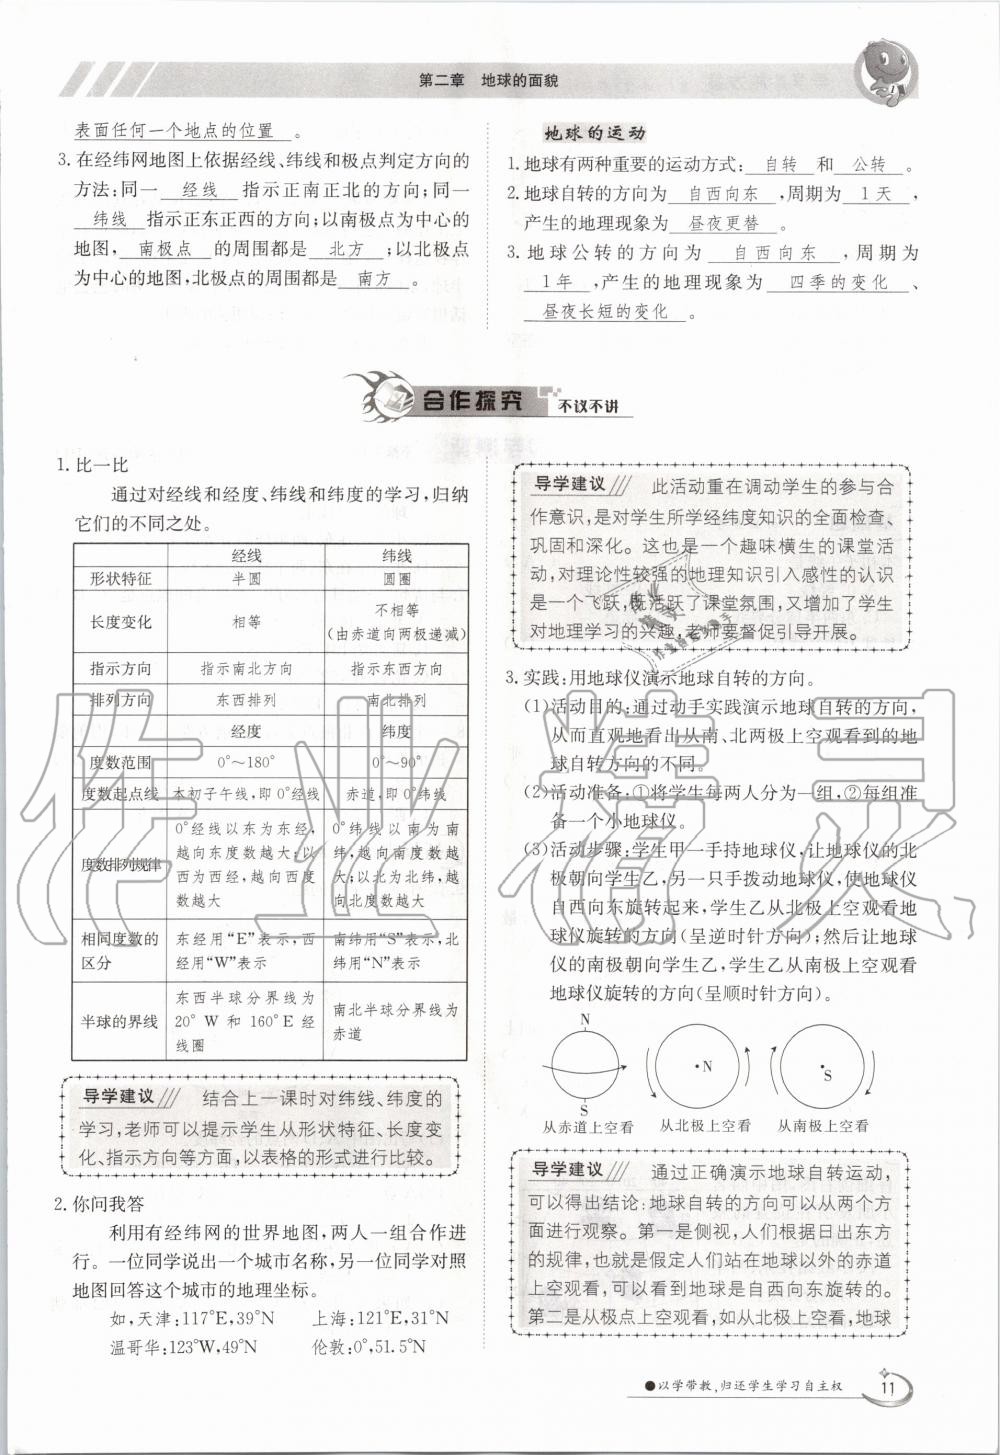 第二章　地球的面貌
表面任何一个地点的位置。
3.在经纬网地图上依据经线、纬线和极点判定方向的
方法:同一 经线 指示正南正北的方向;同一
纬线 指示正东正西的方向;以南极点为中心的
地图, 南极点 的周围都是 北方 ;以北极点
为中心的地图,北极点的周围都是 南方 。
地球的运动
1.地球有两种重要的运动方式: 自转 和 公转 。
2.地球自转的方向为 自西向东 ,周期为 1天 ,
产生的地理现象为 昼夜更替 。
3.地球公转的方向为 自西向东 ,周期为
1年 ,产生的地理现象为 四季的变化 、
昼夜长短的变化 。
合作探究 不议不讲
1.比一比
通过对经线和经度、纬线和纬度的学习,归纳
它们的不同之处。
经线 纬线
形状特征 半圆 圆圈
长度变化 相等 不相等
(由赤道向两极递减)
指示方向 指示南北方向 指示东西方向
排列方向 东西排列 南北排列
经度 纬度
度数范围 0°~180° 0°~90°
度数起点线 本初子午线,即0°经线 赤道,即0°纬线
度数排列规律
0°经线以东为东经,
越向东度数越大;以
西为西经,越向西度
数越大
0°纬线以南为南
纬,越向南度数越
大;以北为北纬,越
向北度数越大
相同度数的
区分
东经用“E”表示,西
经用“W”表示
南纬用“S”表示,北
纬用“N”表示
半球的界线
东西半球分界线为
20°W和160°E经
线圈
南北半球分界线为
赤道
导学建议 结合上一课时对纬线、纬度的
学习,老师可以提示学生从形状特征、长度变
化、指示方向等方面,以表格的形式进行比较。
2.你问我答
利用有经纬网的世界地图,两人一组合作进
行。一位同学说出一个城市名称,另一位同学对照
地图回答这个城市的地理坐标。
如,天津:117°E,39°N 上海:121°E,31°N
温哥华:123°W,49°N 伦敦:0°,51.5°N
导学建议 此活动重在调动学生的参与合
作意识,是对学生所学经纬度知识的全面检查、
巩固和深化。这也是一个趣味横生的课堂活
动,对理论性较强的地理知识引入感性的认识
是一个飞跃,既活跃了课堂氛围,又增加了学生
对地理学习的兴趣,老师要督促引导开展。
3.实践:用地球仪演示地球自转的方向。
(1)活动目的:通过动手实践演示地球自转的方向,
从而直观地看出从南、北两极上空观看到的地
球自转方向的不同。
(2)活动准备:①将学生每两人分为一组,②每组准
备一个小地球仪。
(3)活动步骤:学生甲一手持地球仪,让地球仪的北
极朝向学生乙,另一只手拨动地球仪,使地球仪
自西向东旋转起来,学生乙从北极上空观看地
球仪旋转的方向(呈逆时针方向);然后让地球
仪的南极朝向学生乙,学生乙从南极上空观看
地球仪旋转的方向(呈顺时针方向)。
N
S
N
S
从赤道上空看 从北极上空看 从南极上空看
导学建议 通过正确演示地球自转运动,
可以得出结论:地球自转的方向可以从两个方
面进行观察。第一是侧视,人们根据日出东方
的规律,也就是假定人们站在地球以外的赤道
上空观看,可以看到地球是自西向东旋转的。
第二是从极点上空观看,如从北极上空看,地球
●以学带教,归还学生学习自主权
11
作业精灵